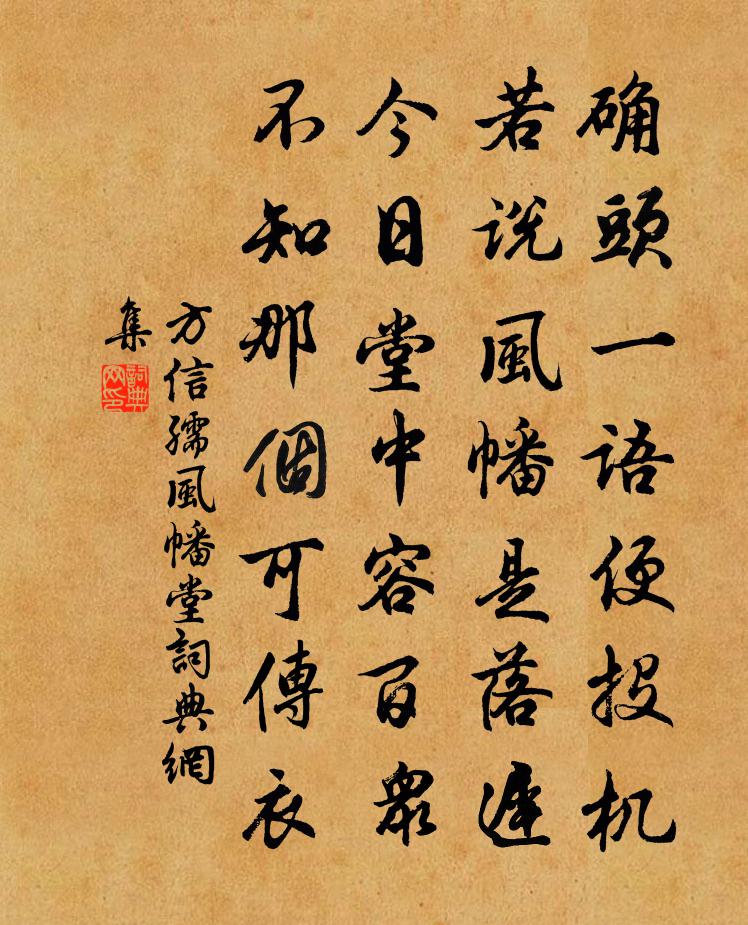 确頭一語便投机
若说風幡是落遲
今日堂中容百衆
不知那個可傳衣
方信孺風幡堂詞典網
集
詞典
网印